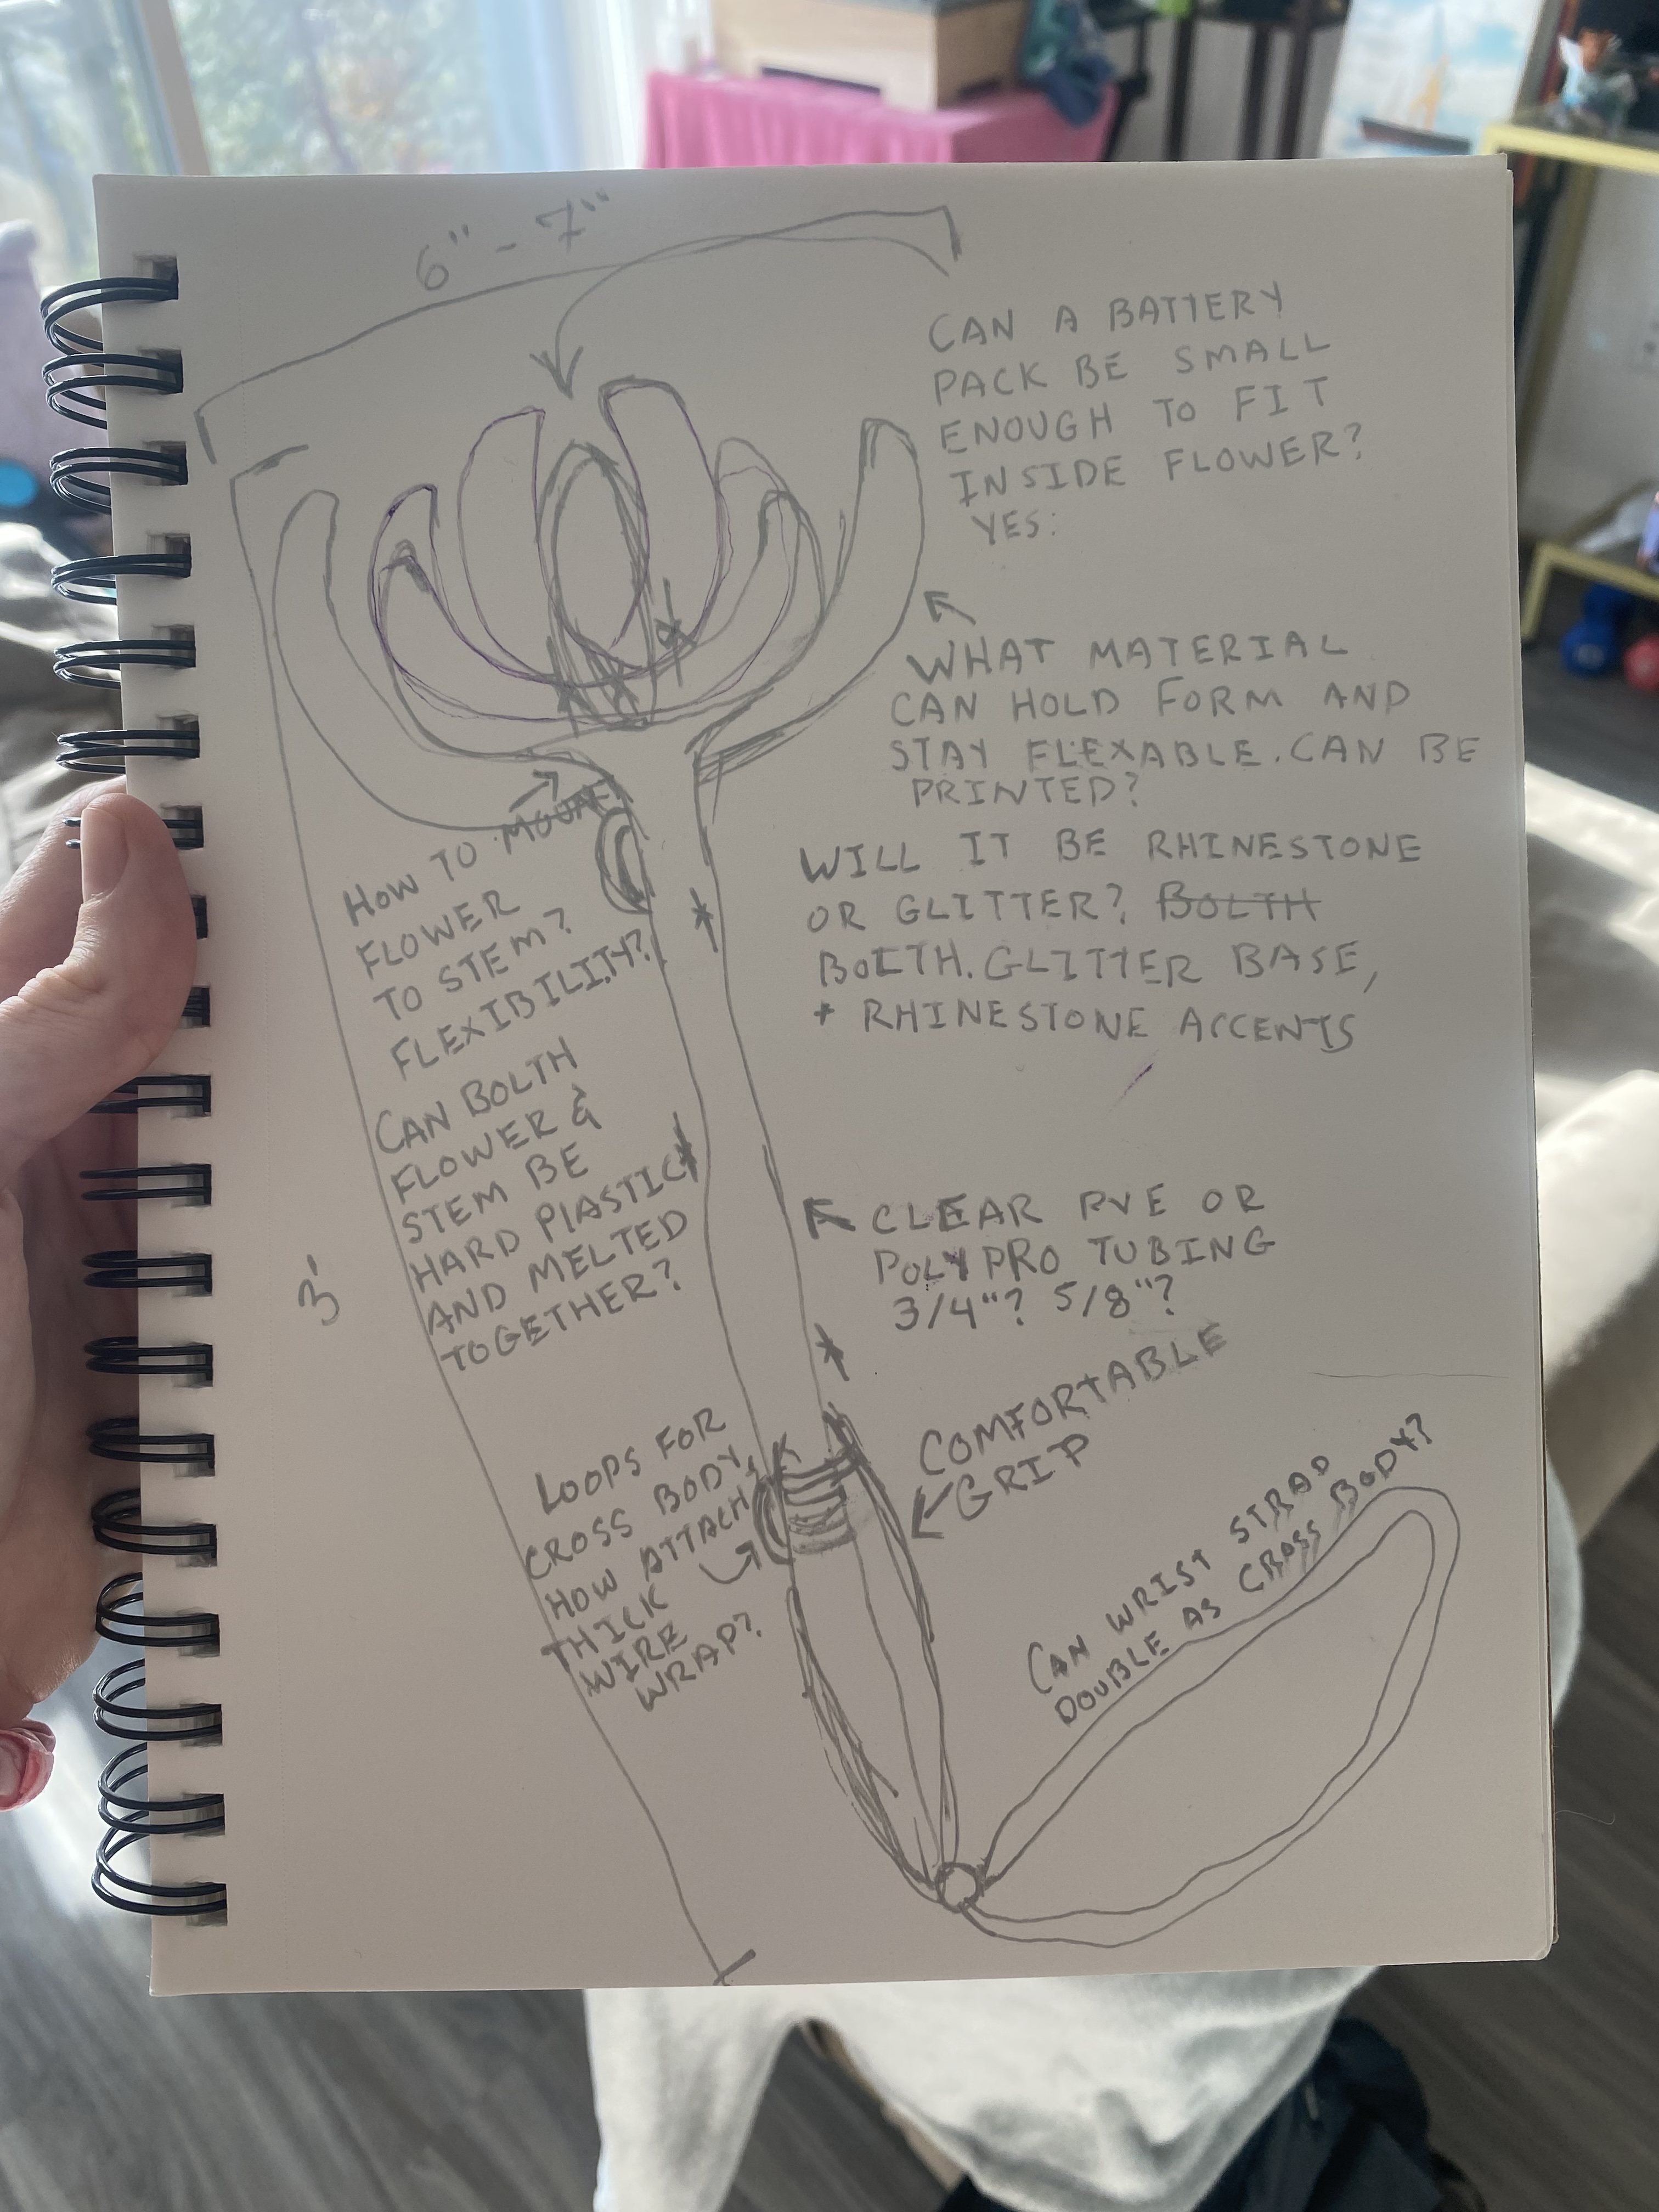 6" - 7"
CAN A BATTERY
PACK BE SMALL
ENOUGH TO FIT
INSIDE FLOWER?
YES:
WHAT MATERIAL
CAN HOLD FORM AND
STAY FLEXABLE. CAN BE
PRINTED?
WILL IT BE RHINESTONE
OR GLITTER? BOLTH
BOLTH. GLITTER BASE,
+ RHINESTONE ACCENTS
HOW TO MOUNT
FLOWER
TO STEM?
FLEXIBILITY?
CAN BOLTH
FLOWER &
STEM BE
HARD PLASTIC
AND MELTED
TOGETHER?
3'
CLEAR PVE OR
POLYPRO TUBING
3/4"? 5/8"?
COMFORTABLE
GRIP
LOOPS FOR
CROSS BODY,
HOW ATTACH
THICK
WIRE
WRAP?
CAN WRIST STRAP
DOUBLE AS CROSS BODY?